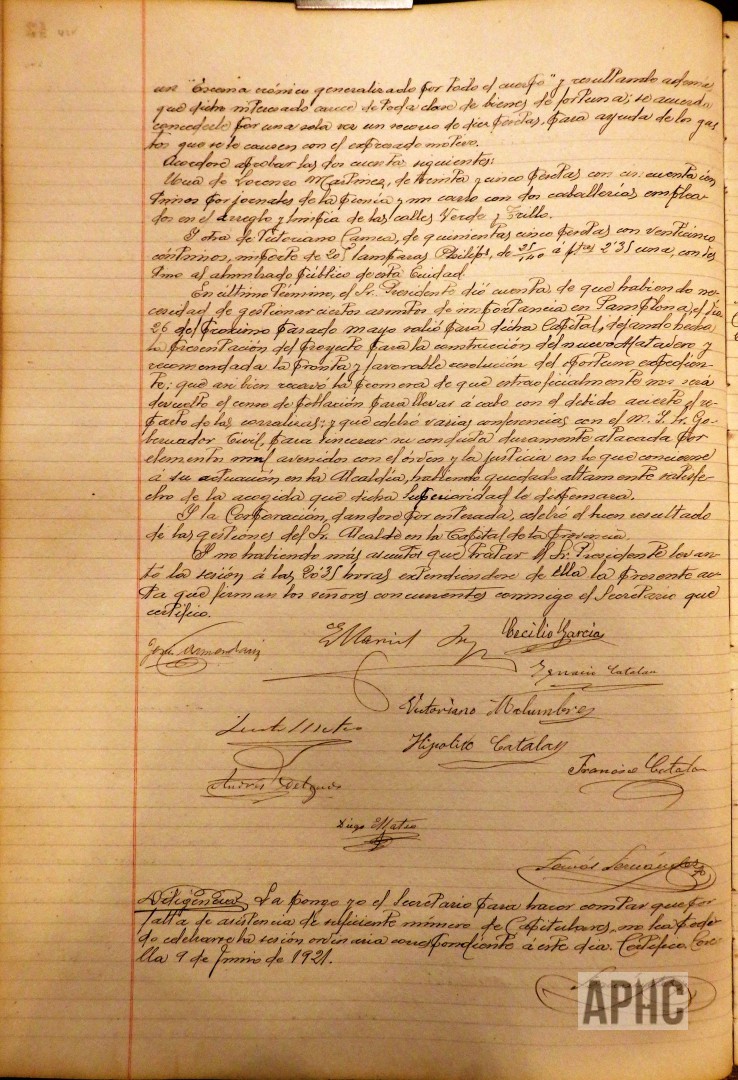 un "Eccema crónico generalizado por todo el cuerpo" y resultando además
que dicho interesado carece de toda clase de bienes de fortuna; se acuerda
concederle por una sola vez un socorro de diez pesetas, para ayuda de los gas
tos que se le causen con el expresado motivo.
Acordose aprobar las dos cuentas siguientes:
Una de Lorenzo Martínez, de treinta y cinco pesetas con cincuenta cén
timos por jornales de la peonía y un carro con dos caballerías emplea-
dos en el arreglo y limpia de las calles Verde y Trillo.
Y otra de Victoriano Camea, de quinientas cinco pesetas con veinticinco
céntimos, importe de 205 lámparas Philips, de 25/140 á ptas 2'35 una, con des
tino al alumbrado público de esta Ciudad.
En último término, el Sr. Presidente dió cuenta de que habiendo ne-
cesidad de gestionar ciertos asuntos de importancia en Pamplona, el día
26 del próximo pasado mayo salió para dicha Capital, dejando hecha
la presentación del proyecto para la construcción del nuevo Matadero y
recomendada la pronta y favorable resolución del oportuno expedien-
te; que así bien recavó la promesa de que extraoficialmente nos será
devuelto el censo de población para llevar á cabo con el debido acierto el re-
parto de las corralizas; y que celebró varias conferencias con el M. I. Sr. Go-
bernador Civil, para sincerar su conducta duramente atacada por
elementos mal avenidos con el órden y la justicia en lo que concierne
á su actuación en la Alcaldía, habiendo quedado altamente satisfe-
cho de la acogida que dicha Superioridad le dispensara.
Y la Corporación, dandose por enterada, celebró el buen resultado
de las gestiones del Sr. Alcalde en la Capital de la Provincia.
Y no habiendo más asuntos que tratar el Sr. Presidente levan-
tó la sesión á las 20'35 horas extendiéndose de ella la presente ac-
ta que firman los señores concurrentes conmigo el Secretario que
certifico.
José Armendariz
Manuel
Cecilio García
Catalan
Victoriano Malumbres
Hipolito Catalan
Francisco Catalan
Andrés Delgado
Diego Mateo
Diligencia. La pongo yo el Secretario para hacer constar que por
falta de asistencia de suficiente número de Capitulares, no ha podi-
do celebrarse la sesión ordinaria correspondiente á este día. Certifico. Core-
lla 9 de Junio de 1921.
APHC